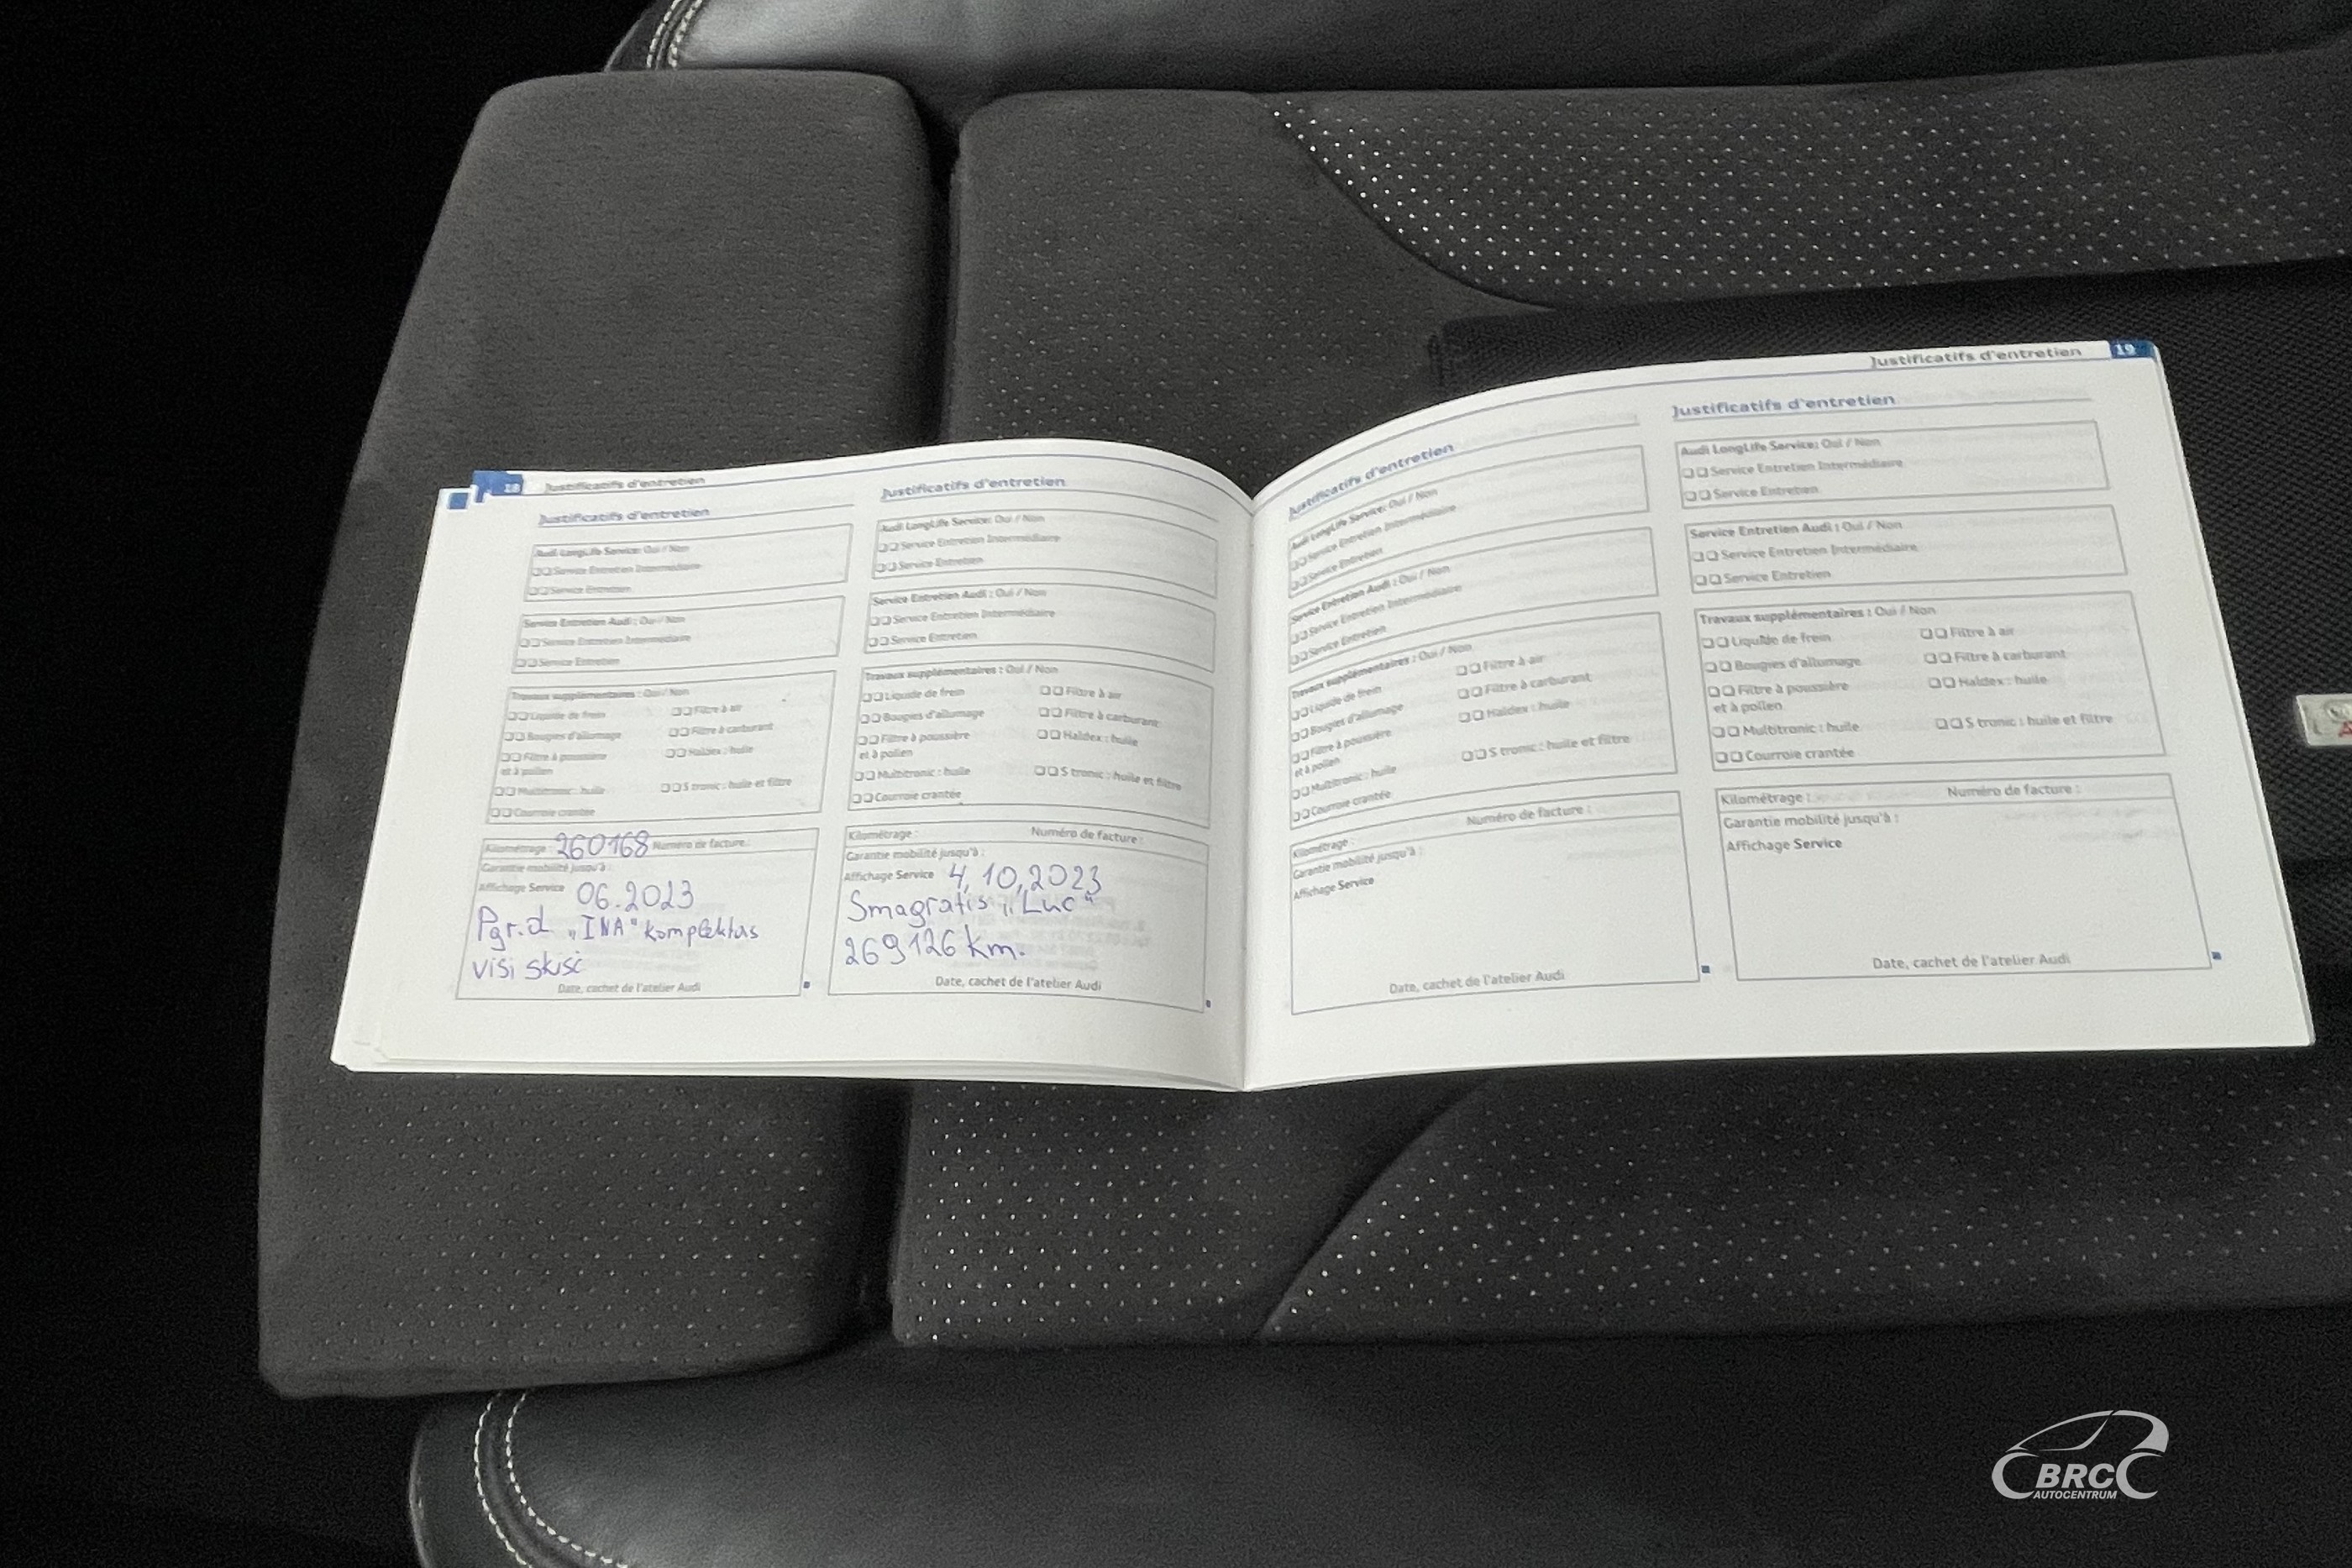 18 Justificatifs d'entretien
Justificatifs d'entretien
Audi LongLife Service: Oui / Non
Service Entretien Intermédiaire
Service Entretien
Service Entretien Audi : Oui / Non
Service Entretien Intermédiaire
Service Entretien
Travaux supplémentaires : Oui / Non
Liquide de frein Filtre à air
Bougies d'allumage Filtre à carburant
Filtre à poussière Haldex : huile
et à pollen
Multitronic : huile S tronic : huile et filtre
Courroie crantée
Kilométrage : 260168 Numéro de facture :
Garantie mobilité jusqu'à :
Affichage Service 06.2023
Pgr.d „INA" komplektas
visi skisč
Date, cachet de l'atelier Audi
Justificatifs d'entretien
Audi LongLife Service: Oui / Non
Service Entretien Intermédiaire
Service Entretien
Service Entretien Audi : Oui / Non
Service Entretien Intermédiaire
Service Entretien
Travaux supplémentaires : Oui / Non
Liquide de frein Filtre à air
Bougies d'allumage Filtre à carburant
Filtre à poussière Haldex : huile
et à pollen
Multitronic : huile S tronic : huile et filtre
Courroie crantée
Kilométrage : Numéro de facture :
Garantie mobilité jusqu'à :
Affichage Service 4,10,2023
Smagratis „Luc"
269126 km.
Date, cachet de l'atelier Audi
Justificatifs d'entretien 19
Justificatifs d'entretien
Audi LongLife Service: Oui / Non
Service Entretien Intermédiaire
Service Entretien
Service Entretien Audi : Oui / Non
Service Entretien Intermédiaire
Service Entretien
Travaux supplémentaires : Oui / Non
Liquide de frein Filtre à air
Bougies d'allumage Filtre à carburant
Filtre à poussière Haldex : huile
et à pollen
Multitronic : huile S tronic : huile et filtre
Courroie crantée
Kilométrage : Numéro de facture :
Garantie mobilité jusqu'à :
Affichage Service
Date, cachet de l'atelier Audi
Justificatifs d'entretien
Audi LongLife Service: Oui / Non
Service Entretien Intermédiaire
Service Entretien
Service Entretien Audi : Oui / Non
Service Entretien Intermédiaire
Service Entretien
Travaux supplémentaires : Oui / Non
Liquide de frein Filtre à air
Bougies d'allumage Filtre à carburant
Filtre à poussière Haldex : huile
et à pollen
Multitronic : huile S tronic : huile et filtre
Courroie crantée
Kilométrage : Numéro de facture :
Garantie mobilité jusqu'à :
Affichage Service
Date, cachet de l'atelier Audi
BRC
AUTOCENTRUM